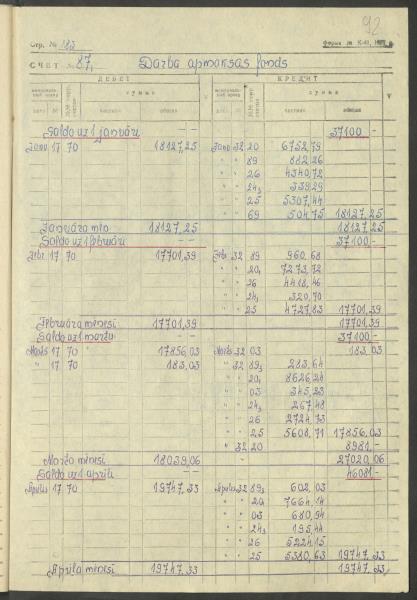 92
Стр. № 183
СЧЕТ № 87, Darba apmaksas fonds
ДЕБЕТ КРЕДИТ
сумма сумма
частная общая частная общая
Saldo uz 1 janvāri - - 37100 -
Janv 17 70 18127,25 Janv 32 20 6752,79
" " 89 882,26
" " 26 4340,72
" " 24₃ 339,29
" " 25 5307,44
" " 69 504,75 18127,25
Janvāra mēn 18127,25 18127,25
Saldo uz 1 februāri - - 37100 -
Febr 17 70 17701,39 Febr 32 89 960,68
" " 20, 7273,72
" " 26 4418,46
" " 24, 320,70
" " 25 4727,83 17701,39
Februāra mēnesi 17701,39 17701,39
Saldo uz 1 martu - - 37100 -
Marts 17 70 17856,03 Marts 32 03 183,03
" 17 70 183,03 " 32 89₃ 283,64
" " 20, 8626,24
" " 03 345,23
" " 24₃ 267,48
" " 26 2724,73
" " 25 5608,71 17856,03
" 32 20 8981 -
Marta mēnesi 18039,06 27020,06
Saldo uz 1 aprīli - - 46081 -
Aprīlis 17 70 19747,33 Aprīlis 32 89₃ 602,03
" " 20 7664,14
" " 03 680,94
" " 24₃ 195,44
" " 26 5224,15
" " 25 5380,63 19747,33
Aprīļa mēnesi 19747,33 19747,33